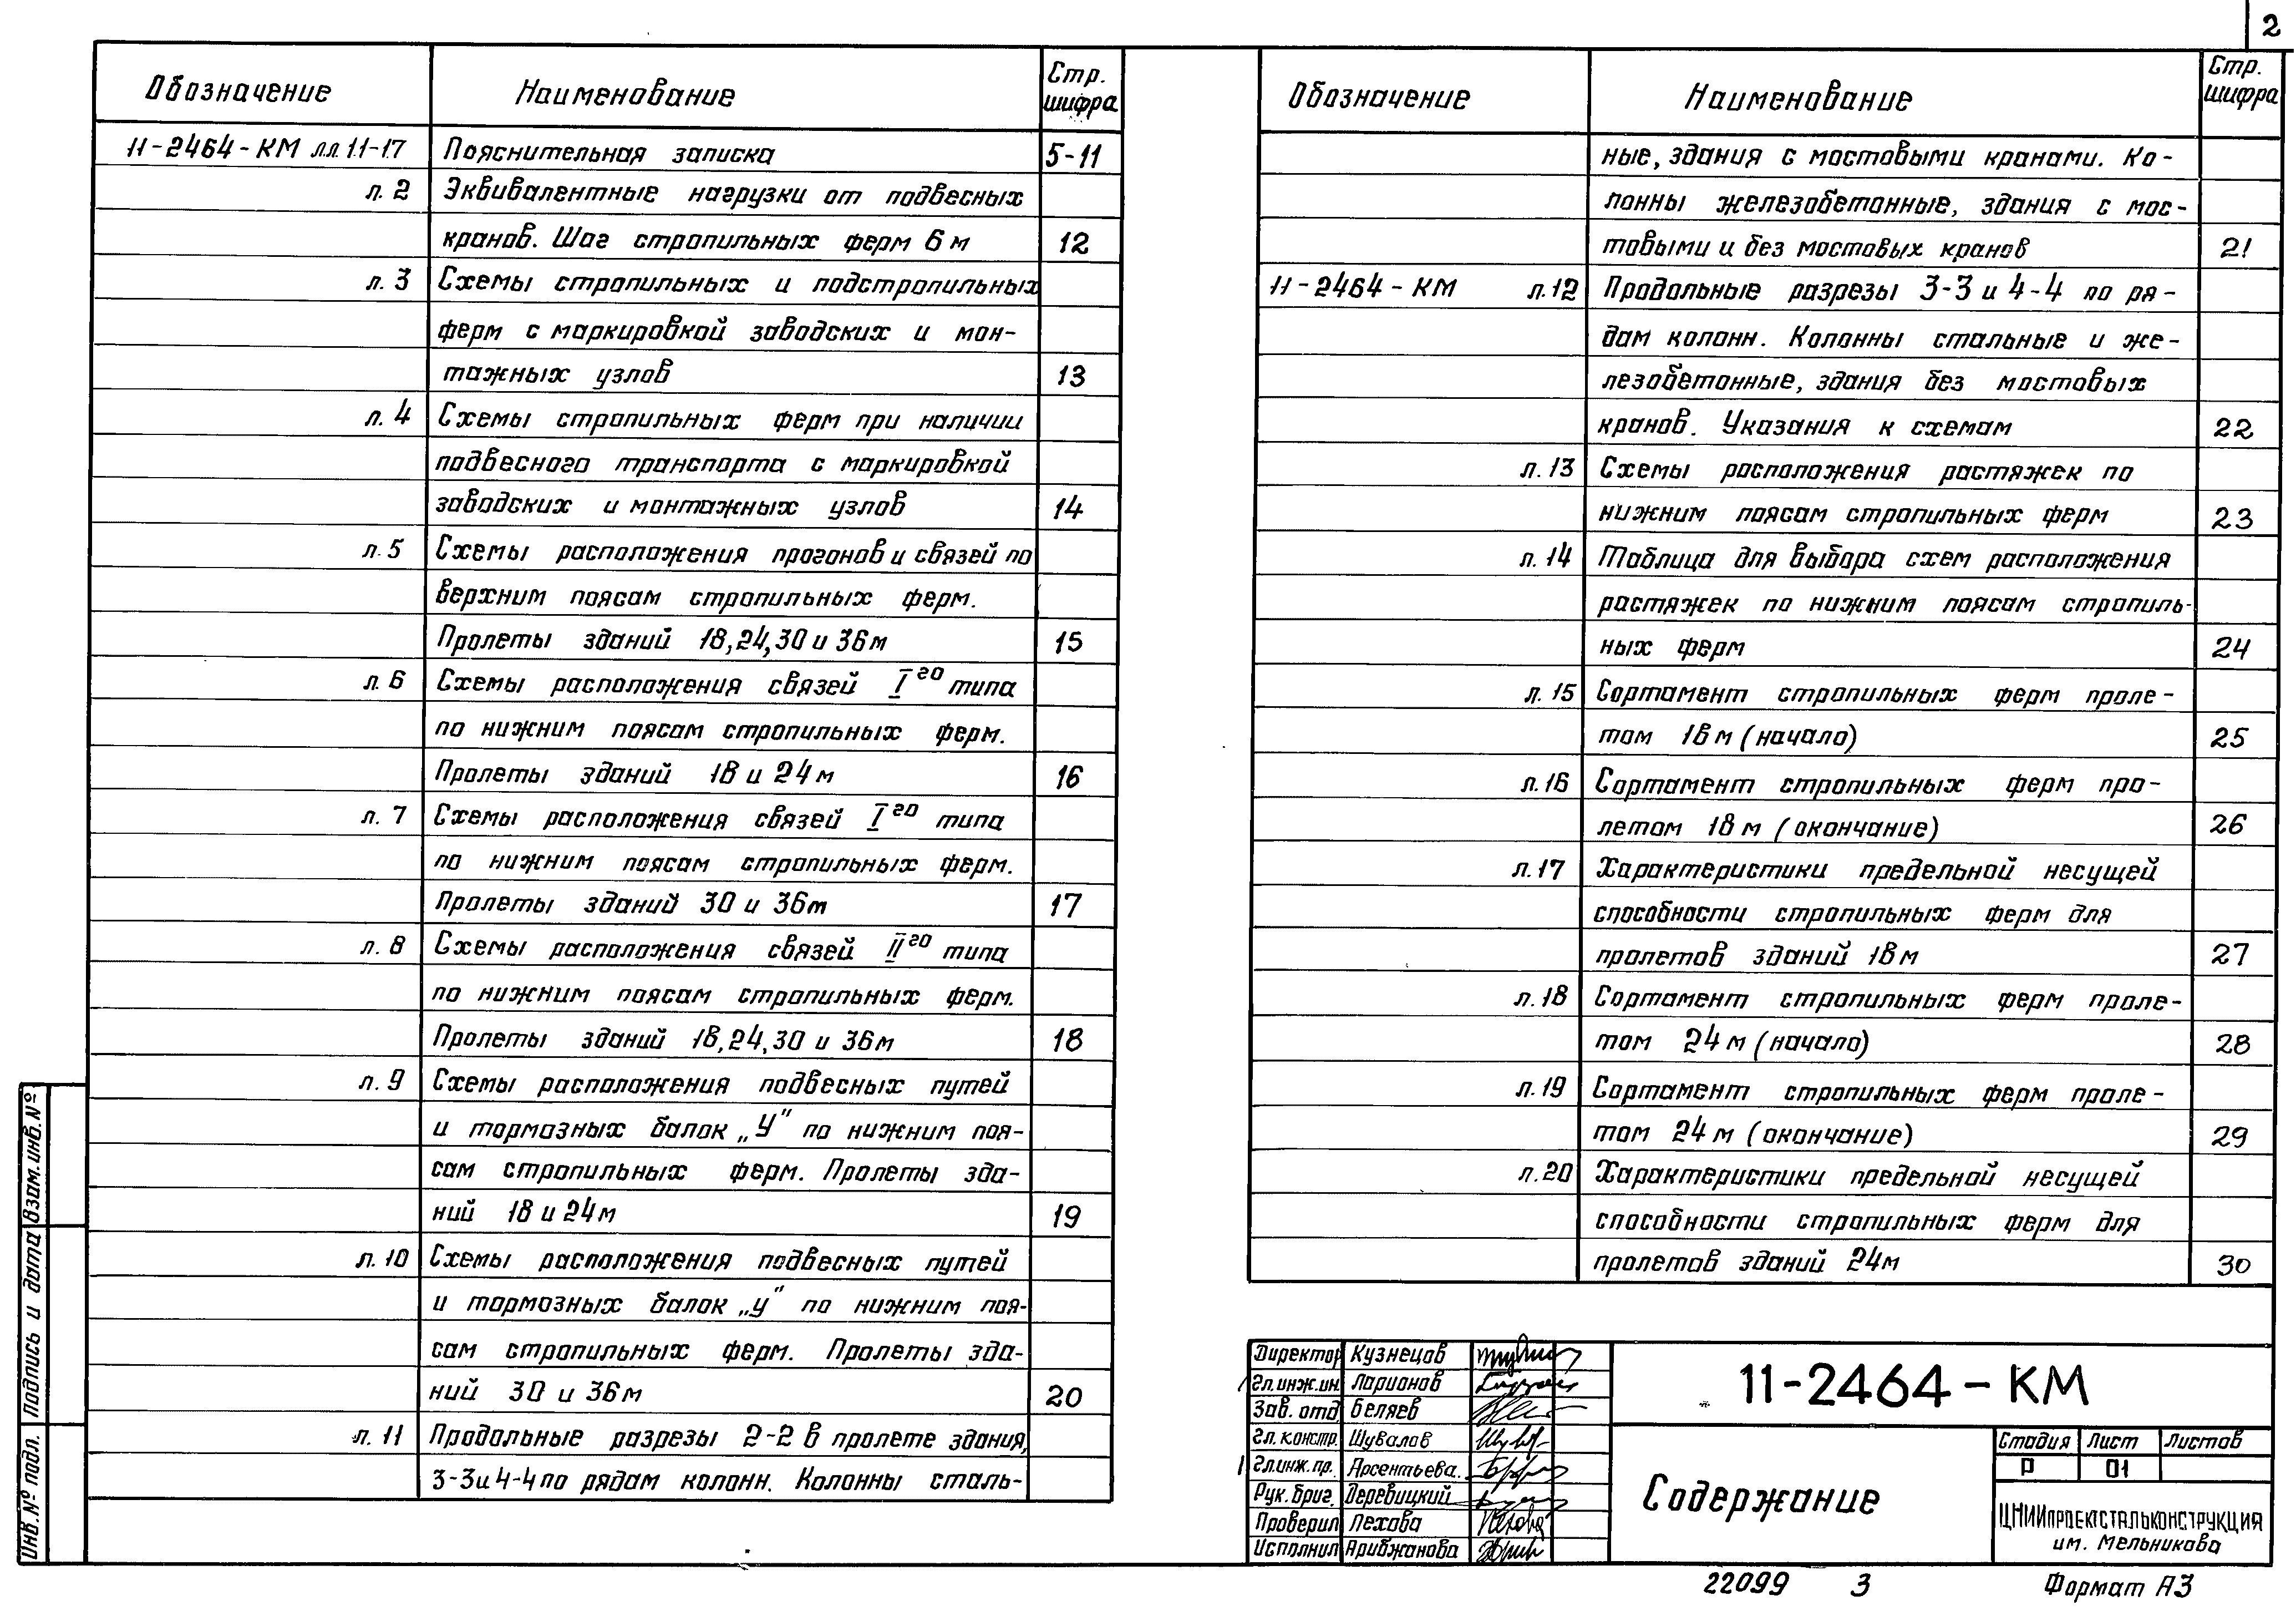 2
Обозначение Наименование Стр. шифра
11-2464-КМ лл.1.1-1.7 Пояснительная записка 5-11
л. 2 Эквивалентные нагрузки от подвесных
кранов. Шаг стропильных ферм 6 м 12
л. 3 Схемы стропильных и подстропильных
ферм с маркировкой заводских и мон-
тажных узлов 13
л. 4 Схемы стропильных ферм при наличии
подвесного транспорта с маркировкой
заводских и монтажных узлов 14
л. 5 Схемы расположения прогонов и связей по
верхним поясам стропильных ферм.
Пролеты зданий 18, 24, 30 и 36 м 15
л. 6 Схемы расположения связей I го типа
по нижним поясам стропильных ферм.
Пролеты зданий 18 и 24 м 16
л. 7 Схемы расположения связей I го типа
по нижним поясам стропильных ферм.
Пролеты зданий 30 и 36 м 17
л. 8 Схемы расположения связей II го типа
по нижним поясам стропильных ферм.
Пролеты зданий 18, 24, 30 и 36 м 18
л. 9 Схемы расположения подвесных путей
и тормозных балок „У" по нижним поя-
сам стропильных ферм. Пролеты зда-
ний 18 и 24 м 19
л. 10 Схемы расположения подвесных путей
и тормозных балок „У" по нижним поя-
сам стропильных ферм. Пролеты зда-
ний 30 и 36 м 20
л. 11 Продольные разрезы 2-2 в пролете здания,
3-3 и 4-4 по рядам колонн. Колонны сталь-
Обозначение Наименование Стр. шифра
ные, здания с мостовыми кранами. Ко-
лонны железобетонные, здания с мос-
товыми и без мостовых кранов 21
11-2464-КМ л.12 Продольные разрезы 3-3 и 4-4 по ря-
дам колонн. Колонны стальные и же-
лезобетонные, здания без мостовых
кранов. Указания к схемам 22
л. 13 Схемы расположения растяжек по
нижним поясам стропильных ферм 23
л. 14 Таблица для выбора схем расположения
растяжек по нижним поясам стропиль-
ных ферм 24
л. 15 Сортамент стропильных ферм проле-
том 18 м (начало) 25
л. 16 Сортамент стропильных ферм про-
летом 18 м (окончание) 26
л. 17 Характеристики предельной несущей
способности стропильных ферм для
пролетов зданий 18 м 27
л. 18 Сортамент стропильных ферм проле-
том 24 м (начало) 28
л. 19 Сортамент стропильных ферм проле-
том 24 м (окончание) 29
л. 20 Характеристики предельной несущей
способности стропильных ферм для
пролетов зданий 24 м 30
Взам. инв. №
Подпись и дата
Инв. № подл.
Директор Кузнецов
Гл. инж. ин. Ларионов
Зав. отд. Беляев
Гл. констр. Шувалов
Гл. инж. пр. Арсентьева
Рук. бриг. Деревицкий
Проверил Пехова
Исполнил Арибжанова
11-2464-КМ
Содержание
Стадия Лист Листов
Р 01
ЦНИИпроектстальконструкция
им. Мельникова
22099 3 Формат А3